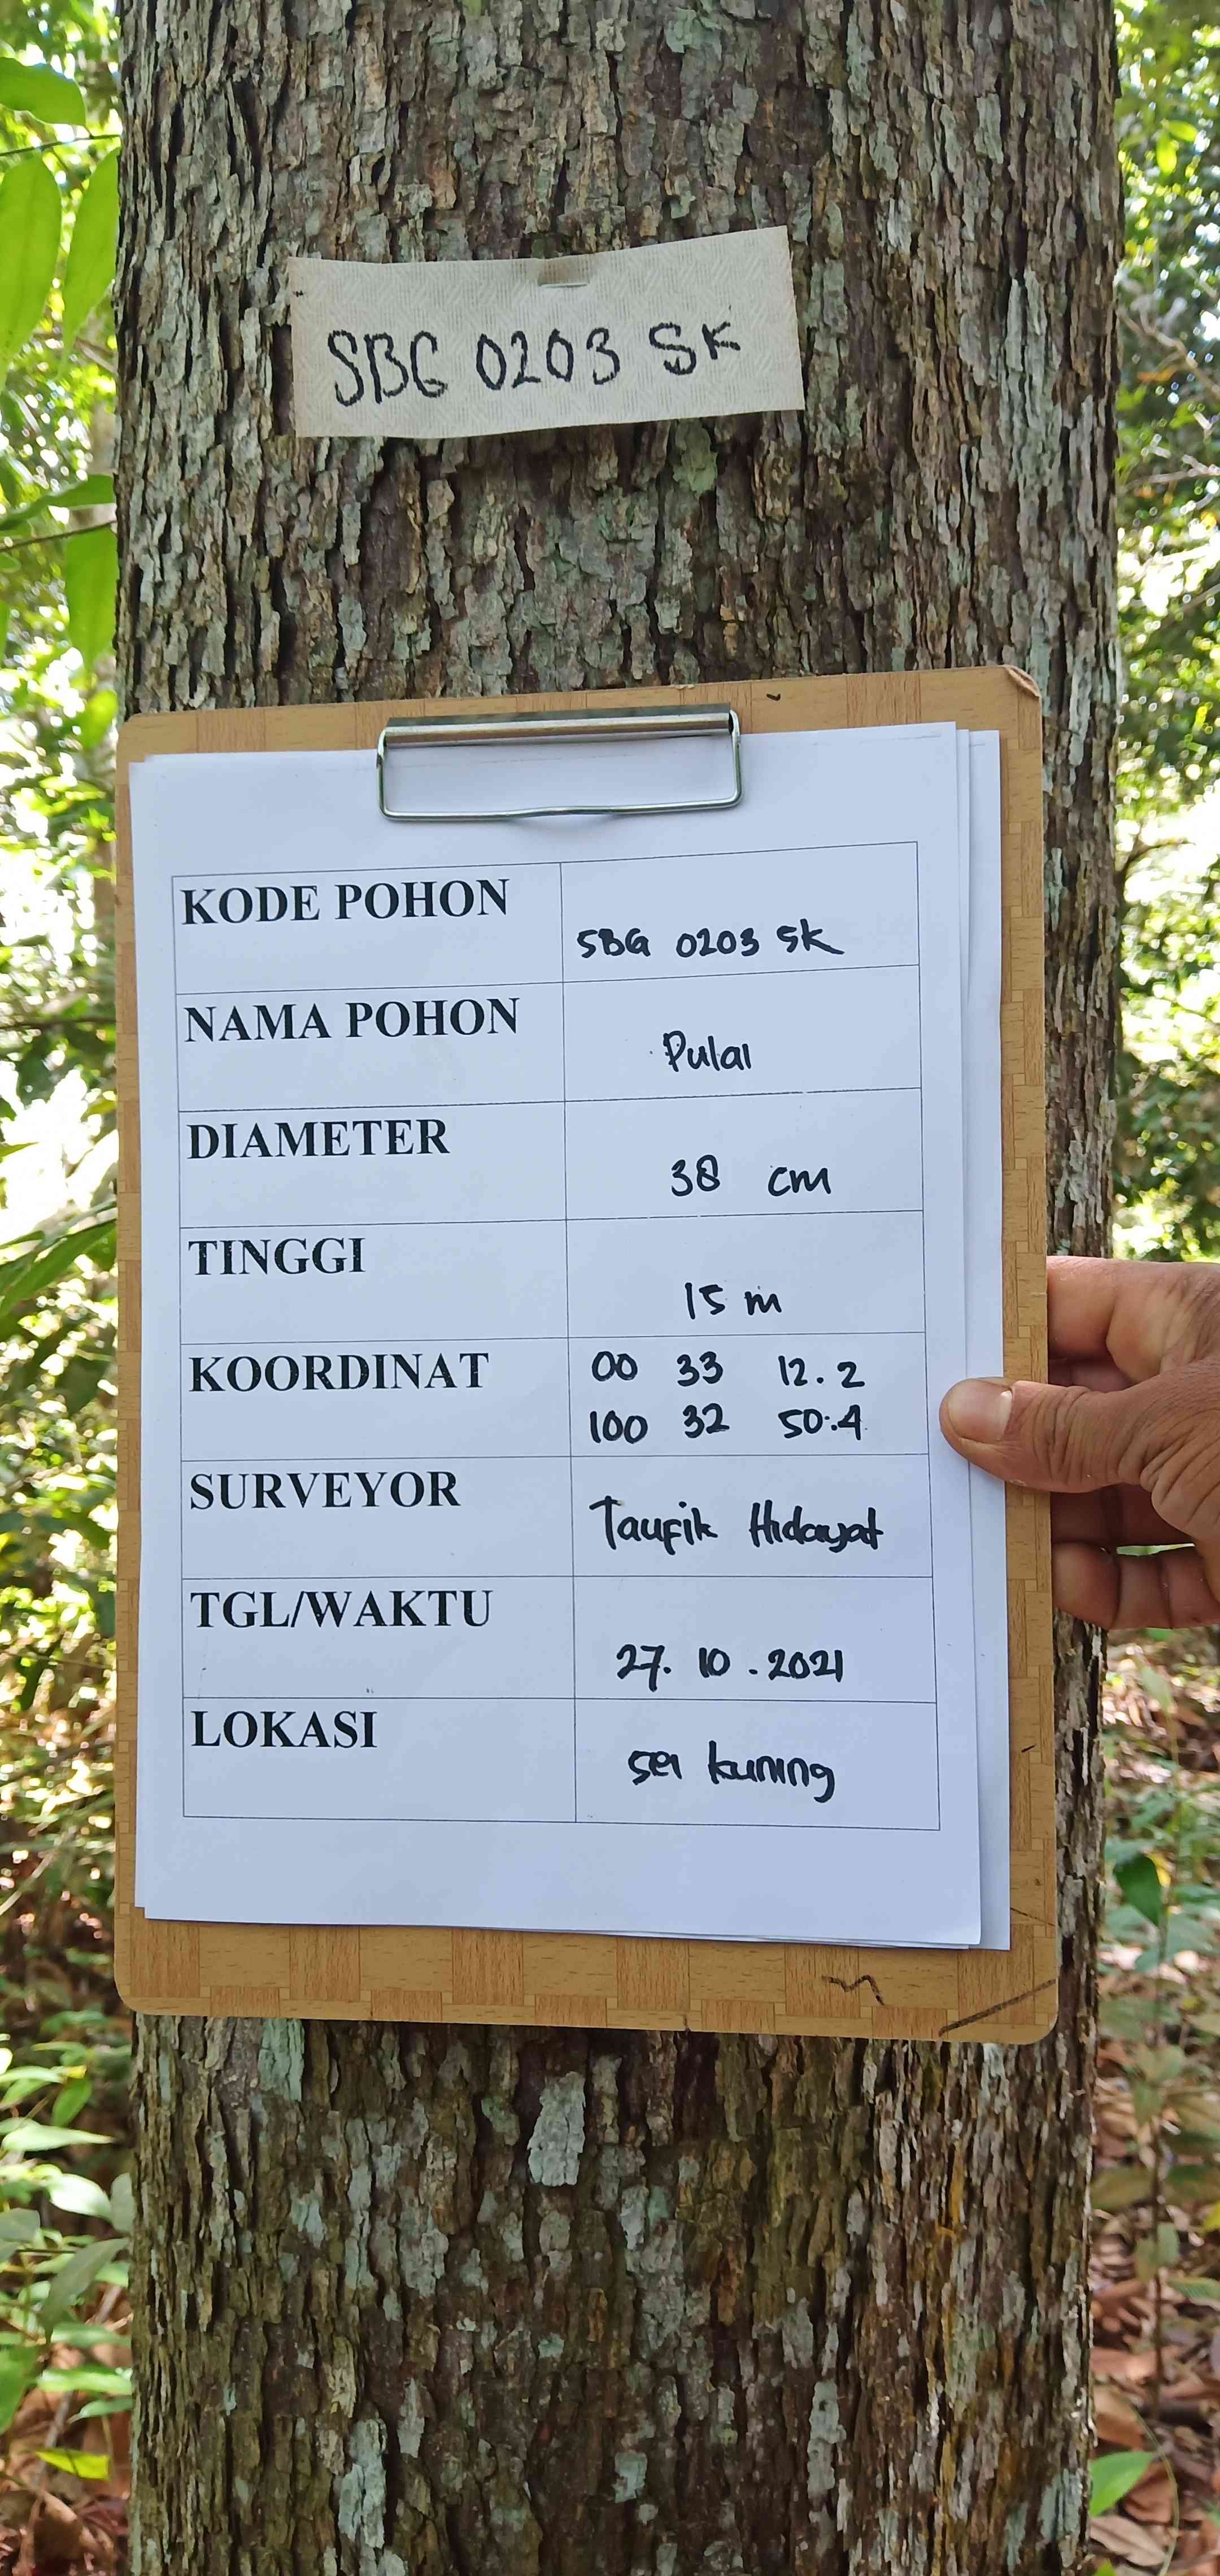 SBG 0203 SK
KODE POHON
SBG 0203 SK
NAMA POHON
Pulai
DIAMETER
38 cm
TINGGI
15 m
KOORDINAT
00 33 12.2
100 32 50.4
SURVEYOR
Taufik Hidayat
TGL/WAKTU
27. 10 . 2021
LOKASI
sei kuning